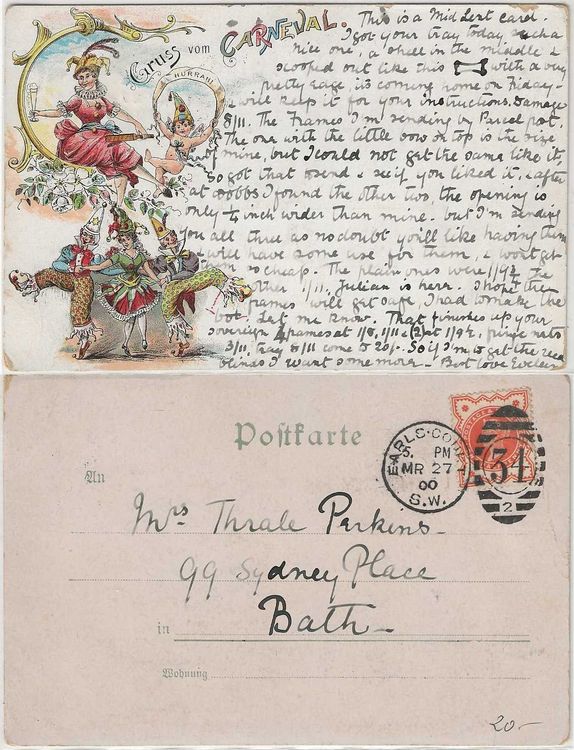 This is a Mid Lent card.
Gruss vom CARNEVAL.
HURRAH!
I got your tray today, such a
nice one, a shell in the middle &
scooped out like this with a very
pretty edge, its coming home on Friday-
will keep it for your instructions. Damage
8/11. The Frames I'm sending by Parcel post.
The one with the little bow on top is the size
of mine, but I could not get the same like it,
so got that to send & see if you liked it, & after
at I found the other two, the opening is
only ¼ inch wider than mine. but I'm sending
you all three as no doubt you'll like having them
will have some use for them, & wont get
them so cheap. The plain ones were 1/9½. The
other 1/11. Julian is here. I hope the
frames will get safe, I had to make the
box! Let me know. That finishes up your
sovereign 4 frames at 1/8, 1/11 & (2) at 1/9½, nets
3/11, tray 8/11 come to 20/-. So if I'm to get the
blinds I want some more- Best love Eveleen
Postkarte
EARLS-COURT
5. PM
MR 27
00
S.W.
34
2
An
Mrs Thrale Perkins-
99 Sydney Place
in Bath-
Wohnung
20.-